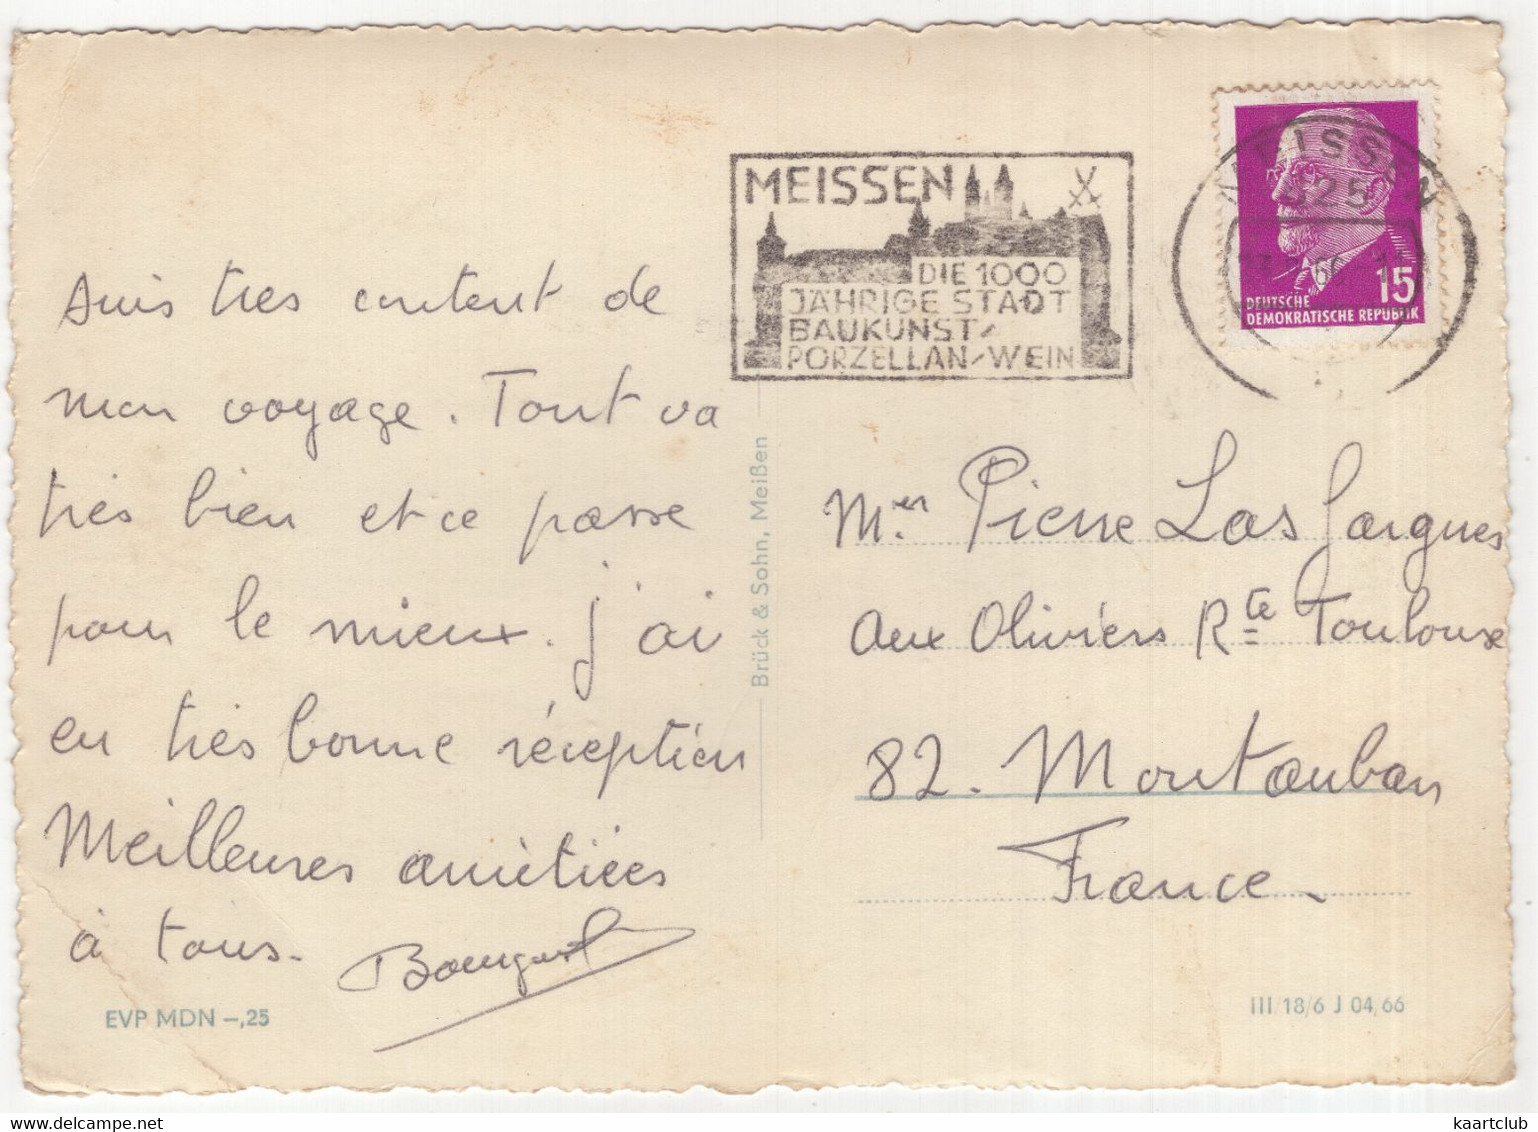 suis très content de
mon voyage. Tout va
très bien et ce passe
pour le mieux. j'ai
eu très bonne réception
Meilleures amitiées
à tous.
EVP MDN -,25
Brück & Sohn, Meißen
MEISSEN
DIE 1000
JÄHRIGE STADT
BAUKUNST/
PORZELLAN/WEIN
MEISSEN
825
15
DEUTSCHE
DEMOKRATISCHE REPUBLIK
Pierre Las Jargues
aux Oliviers Rte Toulouse
82. Montauban
France.
III/18/6 J 04/66
kaartclub